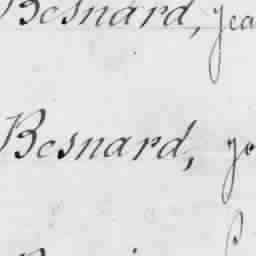 Besnard, jea
Besnard, jo